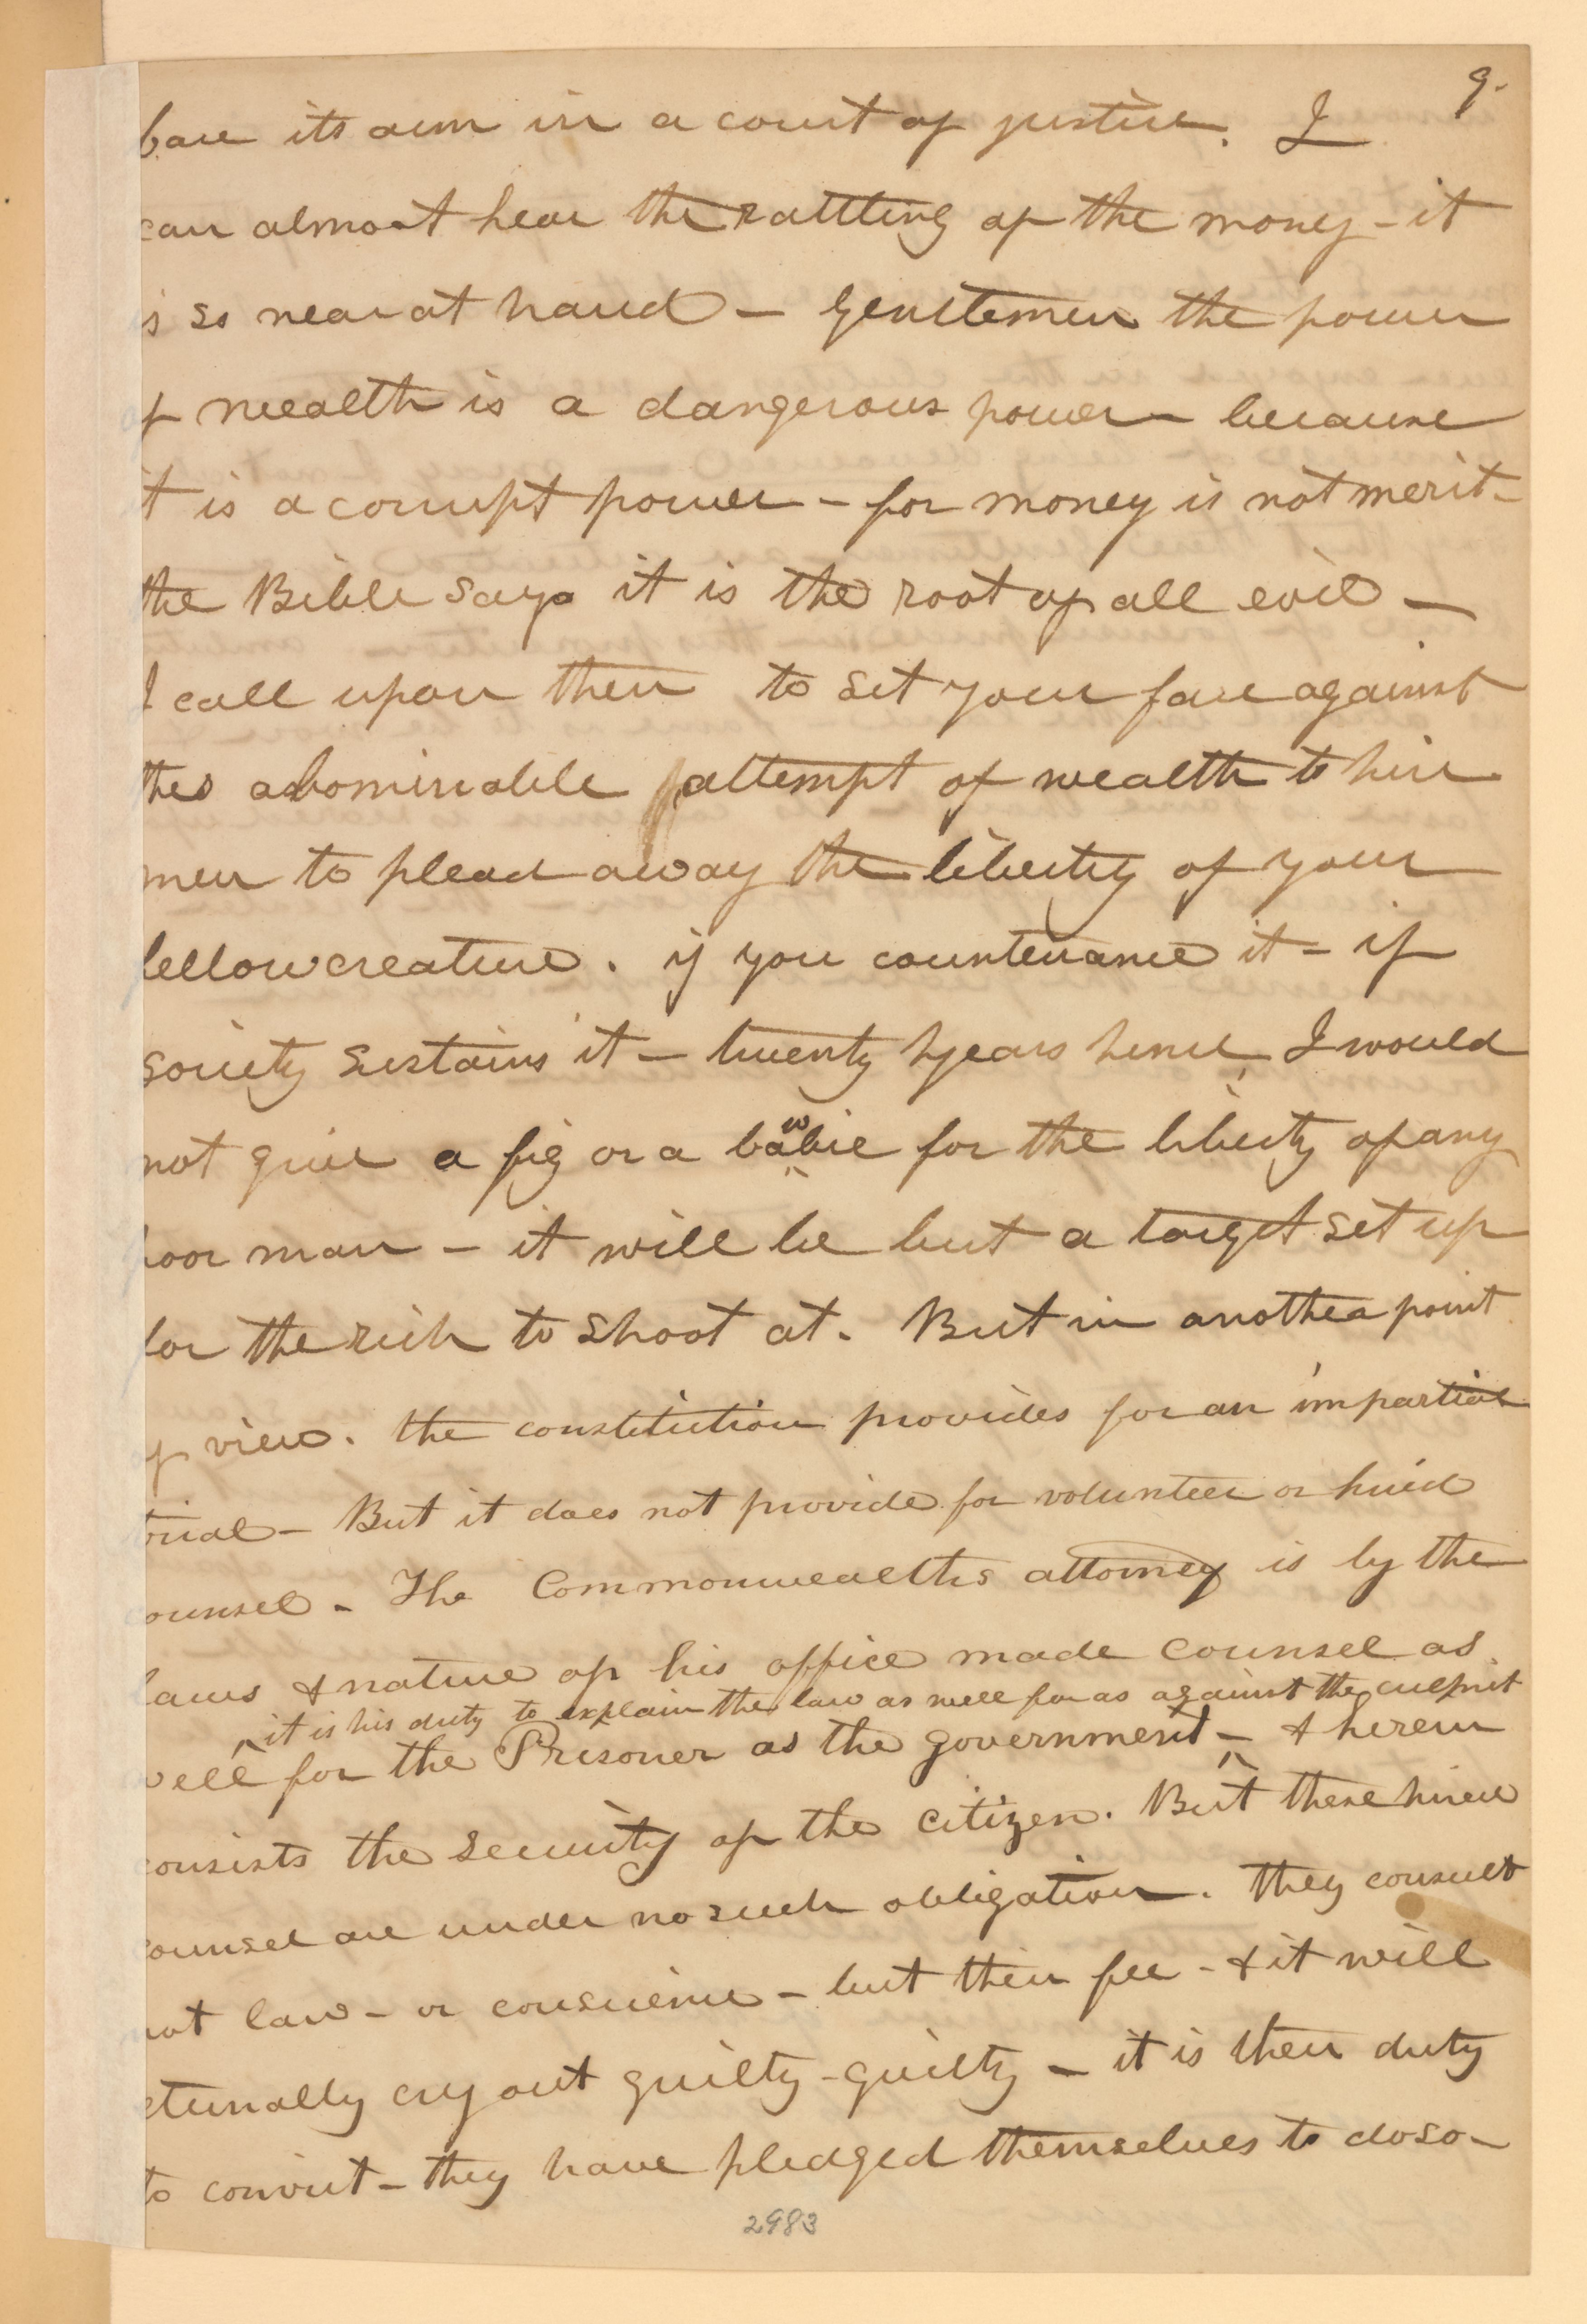 9.
bare its arm in a court of justice. I
can almost hear the rattling of the money - it
is so near at hand - Gentlemen the power
of wealth is a dangerous power - because
it is a corrupt power - for money is not merit -
the Bible says it is the root of all evil -
I call upon then to set your face against
the abominable attempt of wealth to hire
men to plead away the liberty of your
fellow creature. if you countenance it - if
society sustains it - twenty years hence, I would
not give a fig or a bawbie for the liberty of any
poor man - it will be but a target set up
for the rich to shoot at. But in another point
of view. the constitution provides for an impartial
trial - But it does not provide for volunteer or hired
counsel - The Commonwealths attorney is by the
laws & nature of his office made counsel as
it is his duty to explain the law as well for as against the culprit
well for the Prisoner as the government - & herein
consists the security of the citizen. But these hired
counsel are under no such obligation. They consult
not law - or conscience - but their fee - & it will
eternally cry out guilty - guilty - it is their duty
to convict - they have pledged themselves to do so -
2983